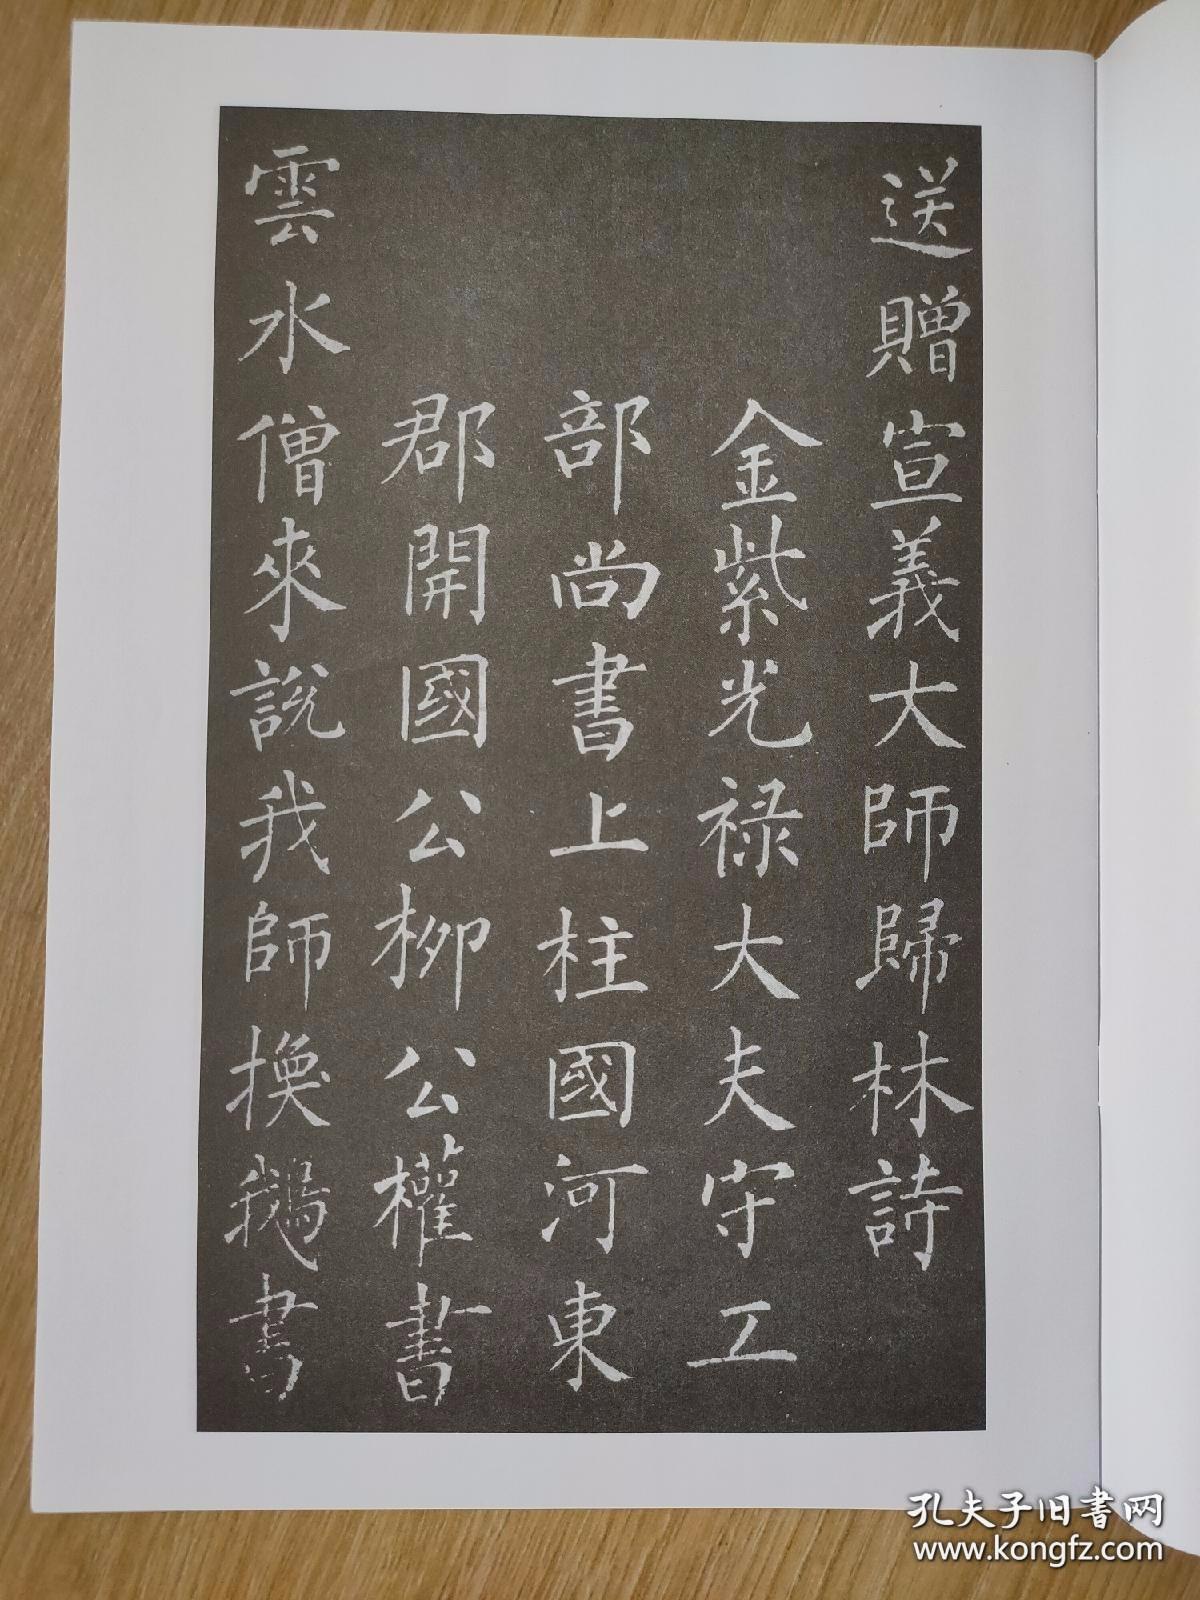 送贈宣義大師歸林詩
金紫光禄大夫守工
部尚書上柱國河東
郡開國公柳公權書
雲水僧來說我師換鵝書
孔夫子旧書网
www.kongfz.com